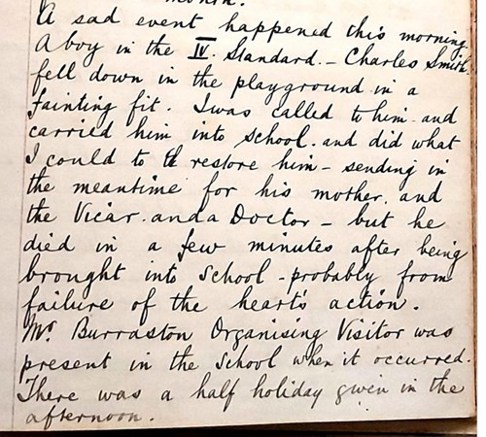 month.
A sad event happened this morning.
A boy in the IV. Standard. - Charles Smith
fell down in the playground in a
fainting fit. I was called to him and
carried him into School. and did what
I could to restore him - sending in
the meantime for his mother. and
the Vicar. and a Doctor - but he
died in a few minutes after being
brought into School - probably from
failure of the heart's action.
Mr. Burraston Organising Visitor was
present in the School when it occurred.
There was a half holiday given in the
afternoon.